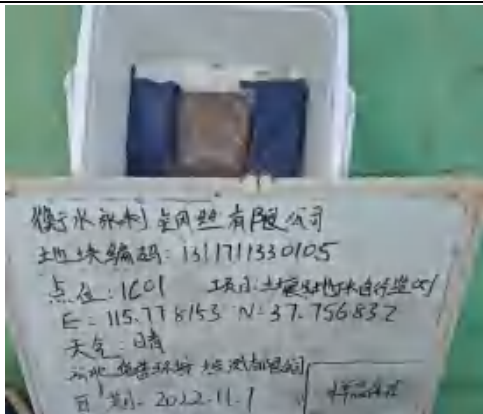 衡水永利金网丝有限公司
地块编码:1311711330105
点位:1C01 项目:土壤及地下水自行监测
E:115.778153 N:37.756832
天气:晴
河北 环 检测有限公司
日期:2022.11.7 样品保存